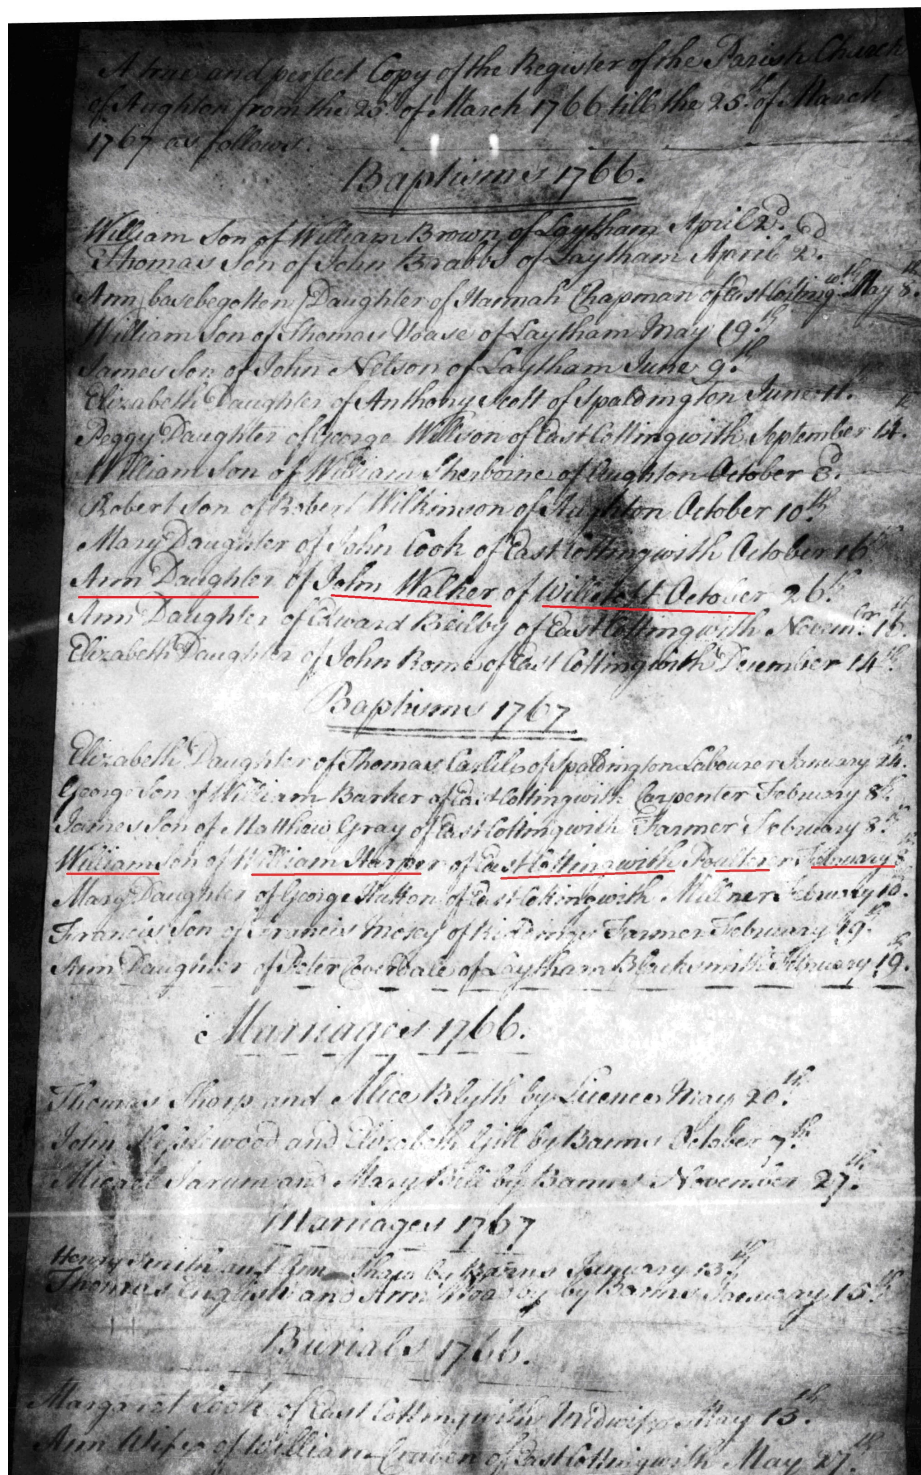 A true and perfect Copy of the Register of the Parish Church
of Aughton from the 25th of March 1766 till the 25th of March
1767 as follows.
Baptisms 1766.
William Son of William Brown of Laytham April 2d.
Thomas Son of John Brabbs of Laytham April 2d.
Ann (basebegotten) Daughter of Hannah Chapman of East Cotting:wth May 8th
William Son of Thomas Voase of Laytham May 19th.
James Son of John Nelson of Laytham June 9th.
Elizabeth Daughter of Anthony Scott of Spaldington June 11.
Peggy Daughter of George Willson of East Cottingwith September 14.
William Son of William Sherboine of Aughton October 3d.
Robert Son of Robert Wilkinson of Aughton October 10th.
Mary Daughter of John Cook of East Cottingwith October 16th
Ann Daughter of John Walker of Willitoft October 26th
Ann Daughter of Edward Beilby of East Cottingwith Novembr. 16th.
Elizabeth Daughter of John Rome of East Cottingwith December 14th.
Baptisms 1767.
Elizabeth Daughter of Thomas Carlile of Spaldington Labourer January 24.
George Son of William Barker of East Cottingwith Carpenter February 8th.
James Son of Matthew Gray of East Cottingwith Farmer February 8th
William Son of William Harper of East Cottingwith Poulterer February
Mary Daughter of George Hutton of East Cottingwith Millner February 10.
Francis Son of Francis Mosey of Farmer February 19th.
Ann Daughter of Peter Coverdale of Laytham Blacksmith February 19th.
Marriages 1766.
Thomas Sharp and Alice Blyth by Licence May 20th.
John and Elizabeth Gill by Banns October 7th
and Mary Bell by Banns November 27th.
Marriages 1767
Henry Smith and Ann Sharp by Banns January 13th
Thomas English and Ann by Banns January 15th
Burials 1766.
Margaret Cook of East Cottingwith Midwife May 13th.
Ann Wife of William Craven of East Cottingwith May 27th.